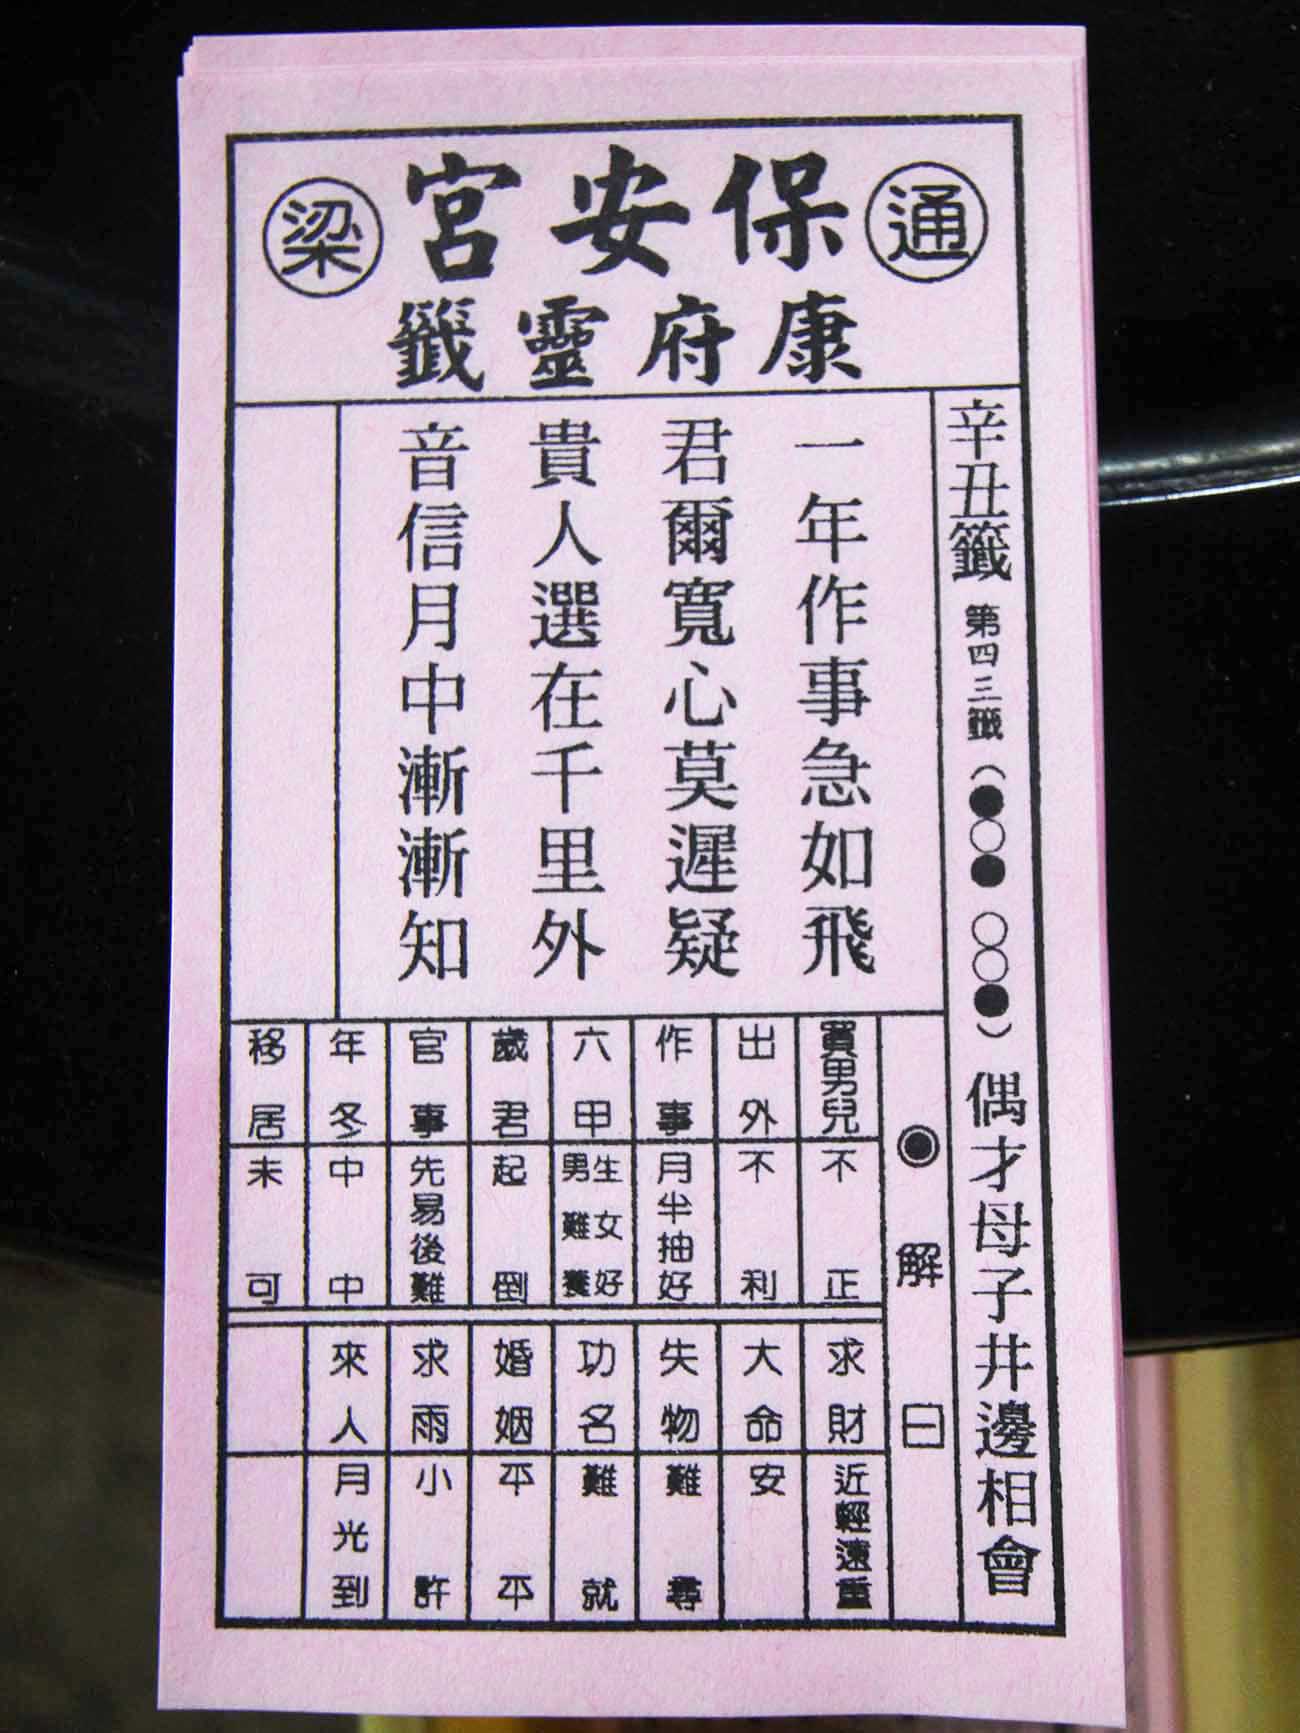 通 保安宮 梁
康府靈籤
辛丑籤 第四三籤（●○● ○○●）偶才母子井邊相會
一年作事急如飛
君爾寬心莫遲疑
貴人選在千里外
音信月中漸漸知
◉解曰
買男兒 不正
出外 不利
作事 月半抽好
六甲 生女好 男難養
歲君 起倒
官事 先易後難
年冬 中中
移居 未可
求財 近輕遠重
大命 安
失物 難尋
功名 難就
婚姻 平平
求雨 小許
來人 月光到